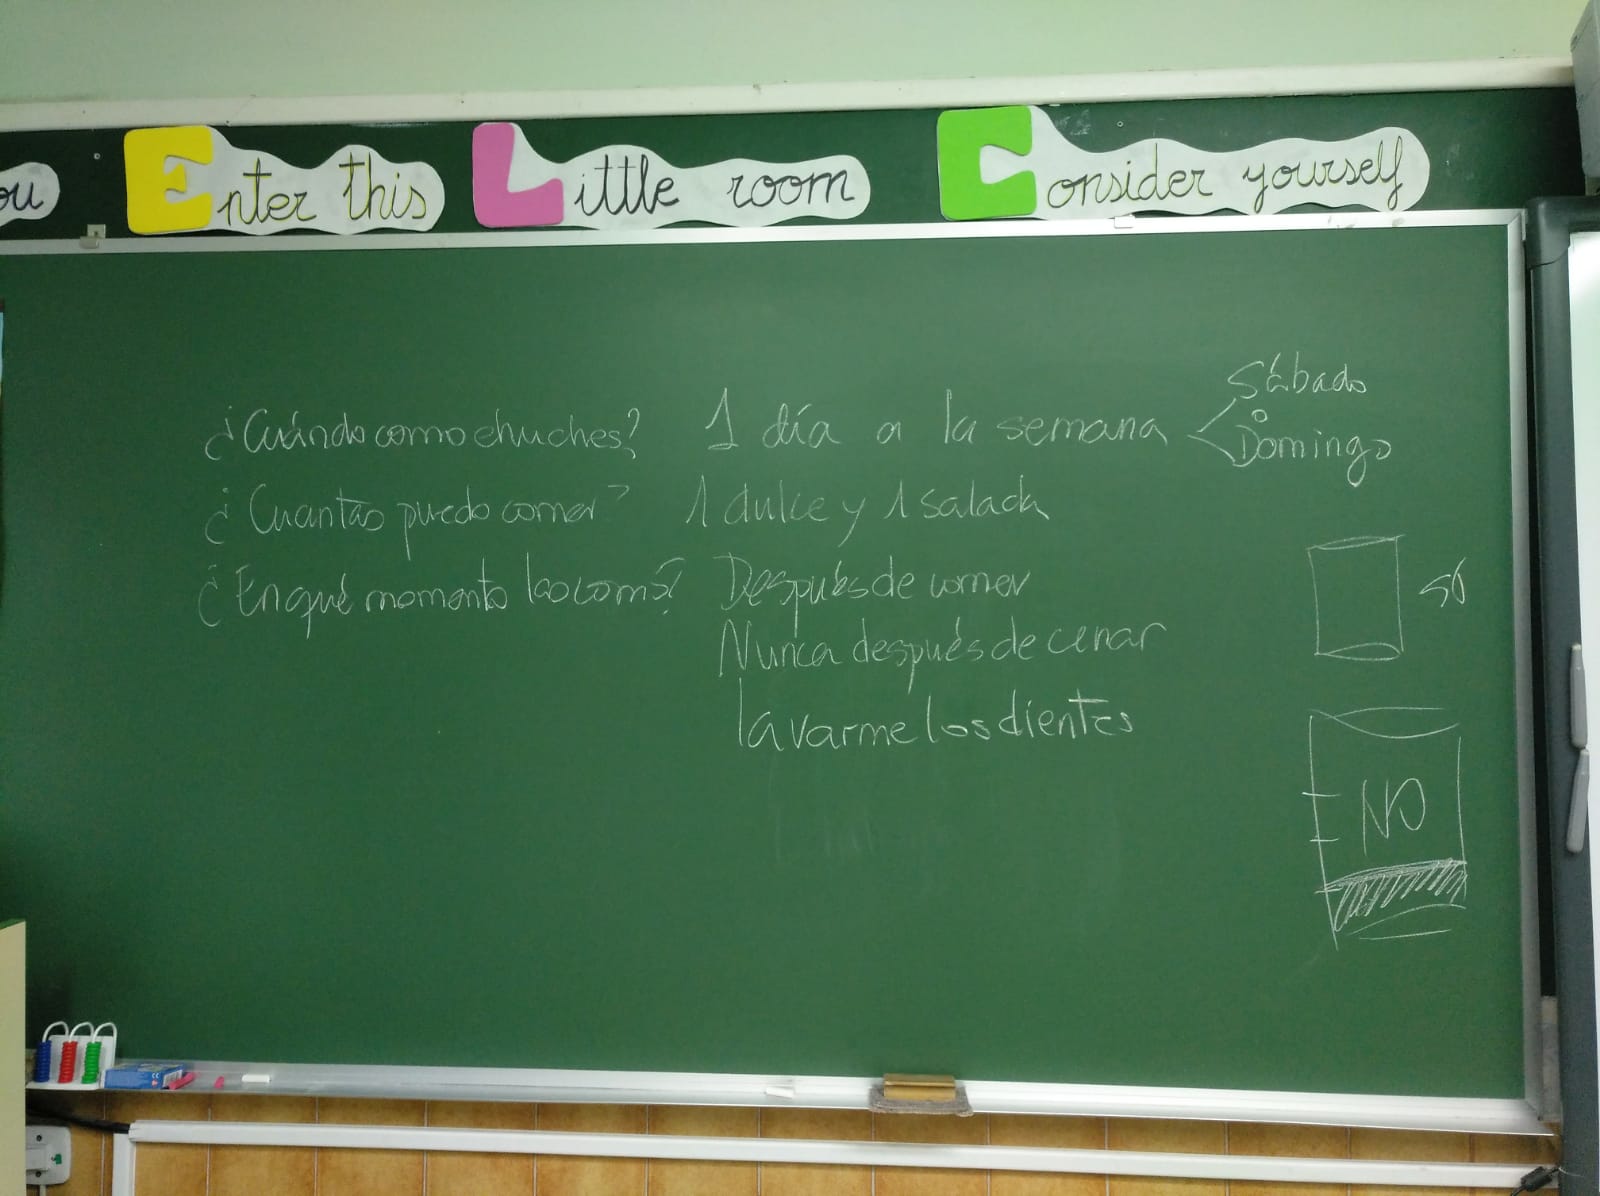 ou Enter this Little room Consider yourself
Sábado
¿Cuándo como chuches? 1 día a la semana o
Domingo
¿Cuantas puedo comer? 1 dulce y 1 salada
¿En qué momento las como? Después de comer
SÍ
Nunca después de cenar
lavarme los dientes
NO